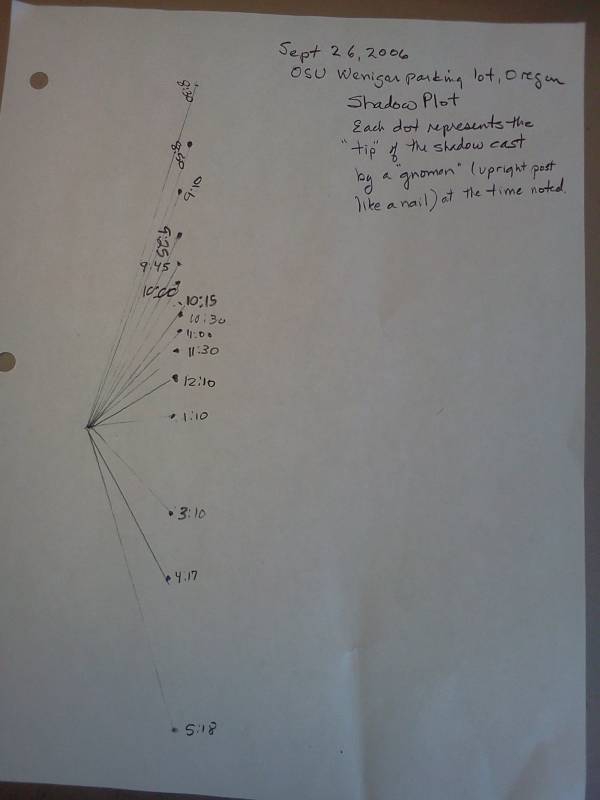 Sept 26, 2006
OSU Weniger parking lot, Oregon
Shadow Plot
Each dot represents the
"tip" of the shadow cast
by a "gnomon" (upright post
like a nail) at the time noted.
8:30
8:50
9:10
9:25
9:45
10:00
10:15
10:30
11:00
11:30
12:10
1:10
3:10
4:17
5:18